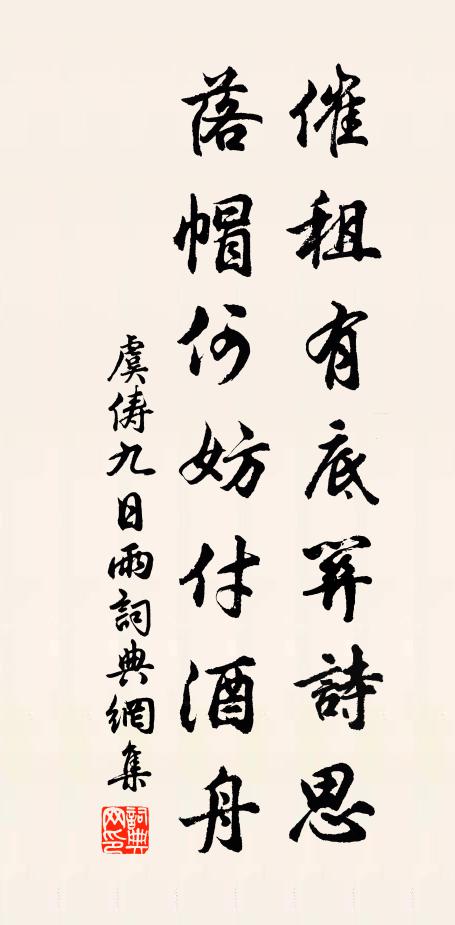 催租有底關詩思
落帽何妨付酒舟
虞儔九日雨詞典網集
詞典网印